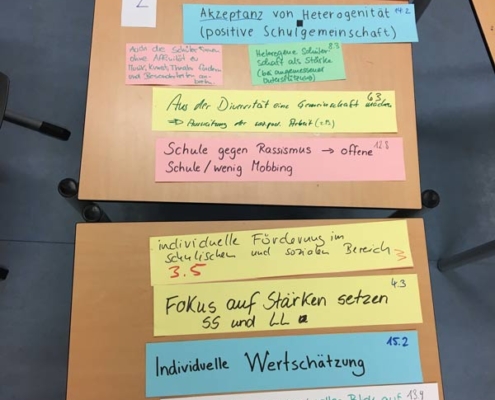 2
Akzeptanz von Heterogenität 14.2
(positive Schulgemeinschaft)
Auch die Schüler*innen
ohne Affinität zu
Musik, Kunst, Theater fördern
Heterogene Schüler 8.3
schaft als Stärke
(bei angemessener
Unterstützung)
Aus der Diversität eine Gemeinschaft machen 6.3
→ Ausweitung der Arbeit
Schule gegen Rassismus → offene 12.8
Schule / wenig Mobbing
individuelle Förderung im
schulischen und sozialen Bereich
3.5
Fokus auf Stärken setzen 4.3
SS und LL
15.2
Individuelle Wertschätzung
Blick auf 13.9